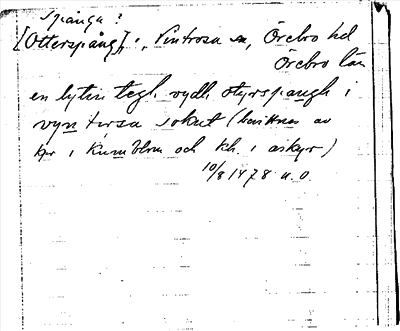 Spånga?
[Otterspång], Vintrosa sn, Örebro hd
Örebro län
en lytin tegh vydh otyrspangh i
vyntirsa soknt (bevittnas av
kpr i Kumblom och kh. i askyr)
10/8 1478 u.o.